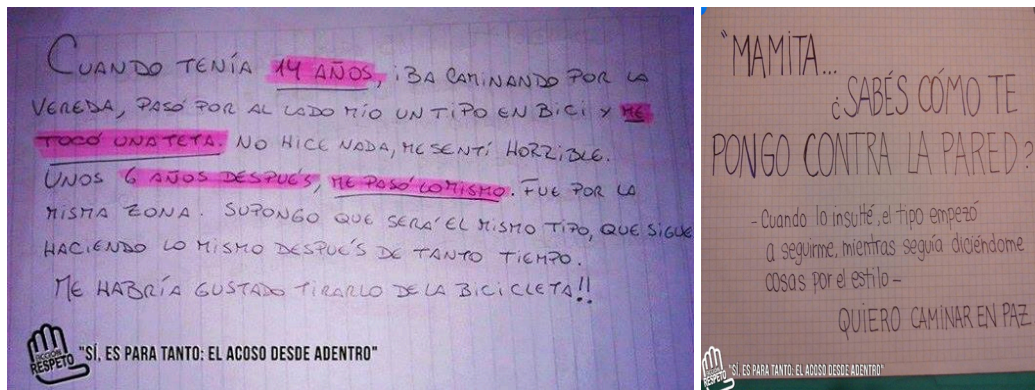 CUANDO TENÍA 14 AÑOS, IBA CAMINANDO POR LA
VEREDA, PASÓ POR AL LADO MÍO UN TIPO EN BICI Y ME
TOCÓ UNA TETA. NO HICE NADA, ME SENTÍ HORRIBLE.
UNOS 6 AÑOS DESPUÉS, ME PASÓ LO MISMO. FUE POR LA
MISMA ZONA. SUPONGO QUE SERÁ EL MISMO TIPO, QUE SIGUE
HACIENDO LO MISMO DESPUÉS DE TANTO TIEMPO.
ME HABRÍA GUSTADO TIRARLO DE LA BICICLETA!!
ACCIÓN
RESPETO
"SÍ, ES PARA TANTO: EL ACOSO DESDE ADENTRO"
"MAMITA...
¿SABÉS CÓMO TE
PONGO CONTRA LA PARED?
- Cuando lo insulté, el tipo empezó
a seguirme, mientras seguía diciéndome
cosas por el estilo -
QUIERO CAMINAR EN PAZ
ACCIÓN
RESPETO
"SÍ, ES PARA TANTO: EL ACOSO DESDE ADENTRO"